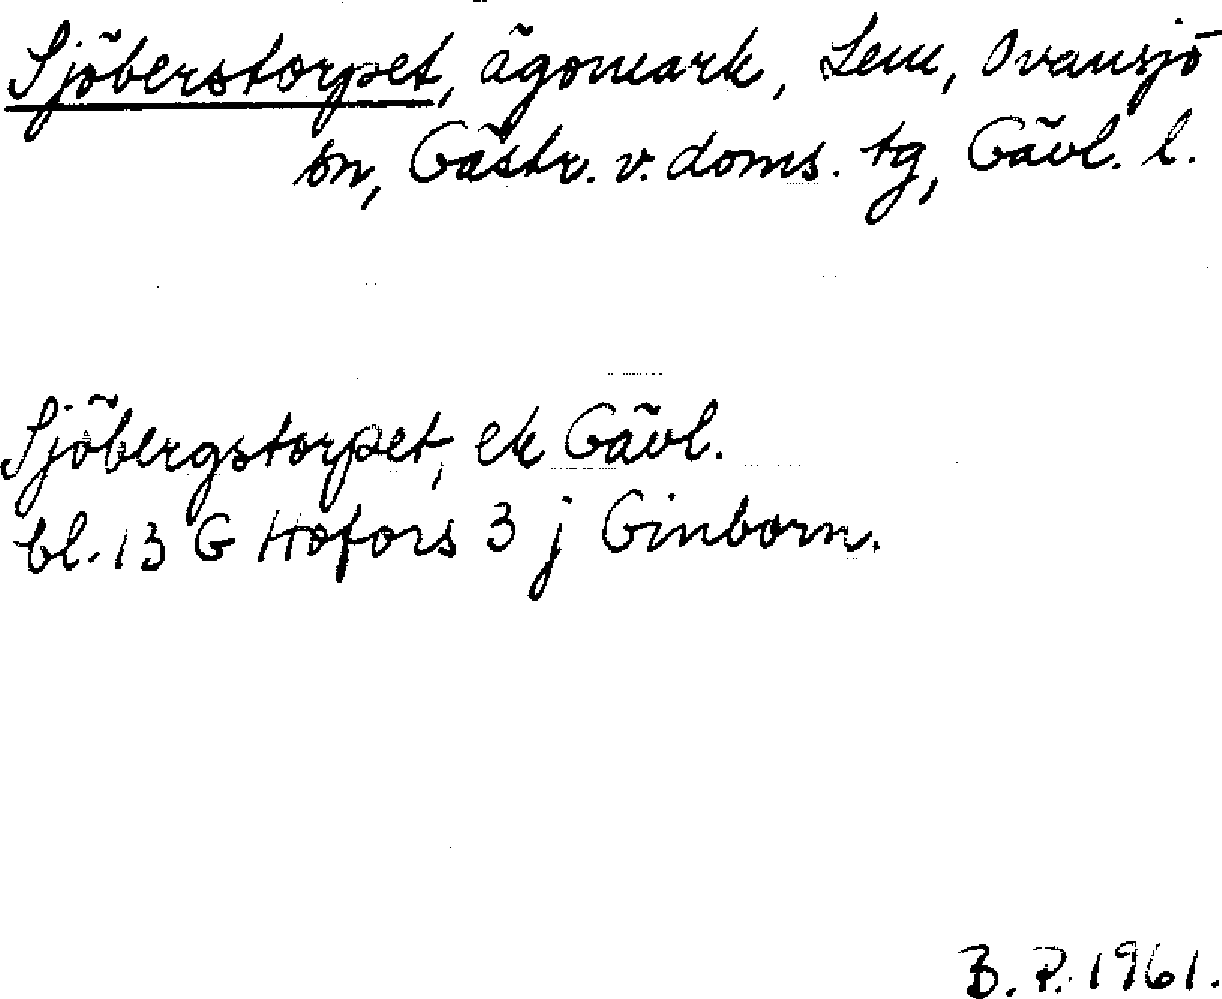 Sjöberstorpet, ägomark, Lem, Ovansjö
sn, Gästr. v. doms. tg, Gävl. l.
Sjöbergstorpet, ek Gävl.
bl. 13 G Hofors 3 j Ginborn.
B. P. 1961.